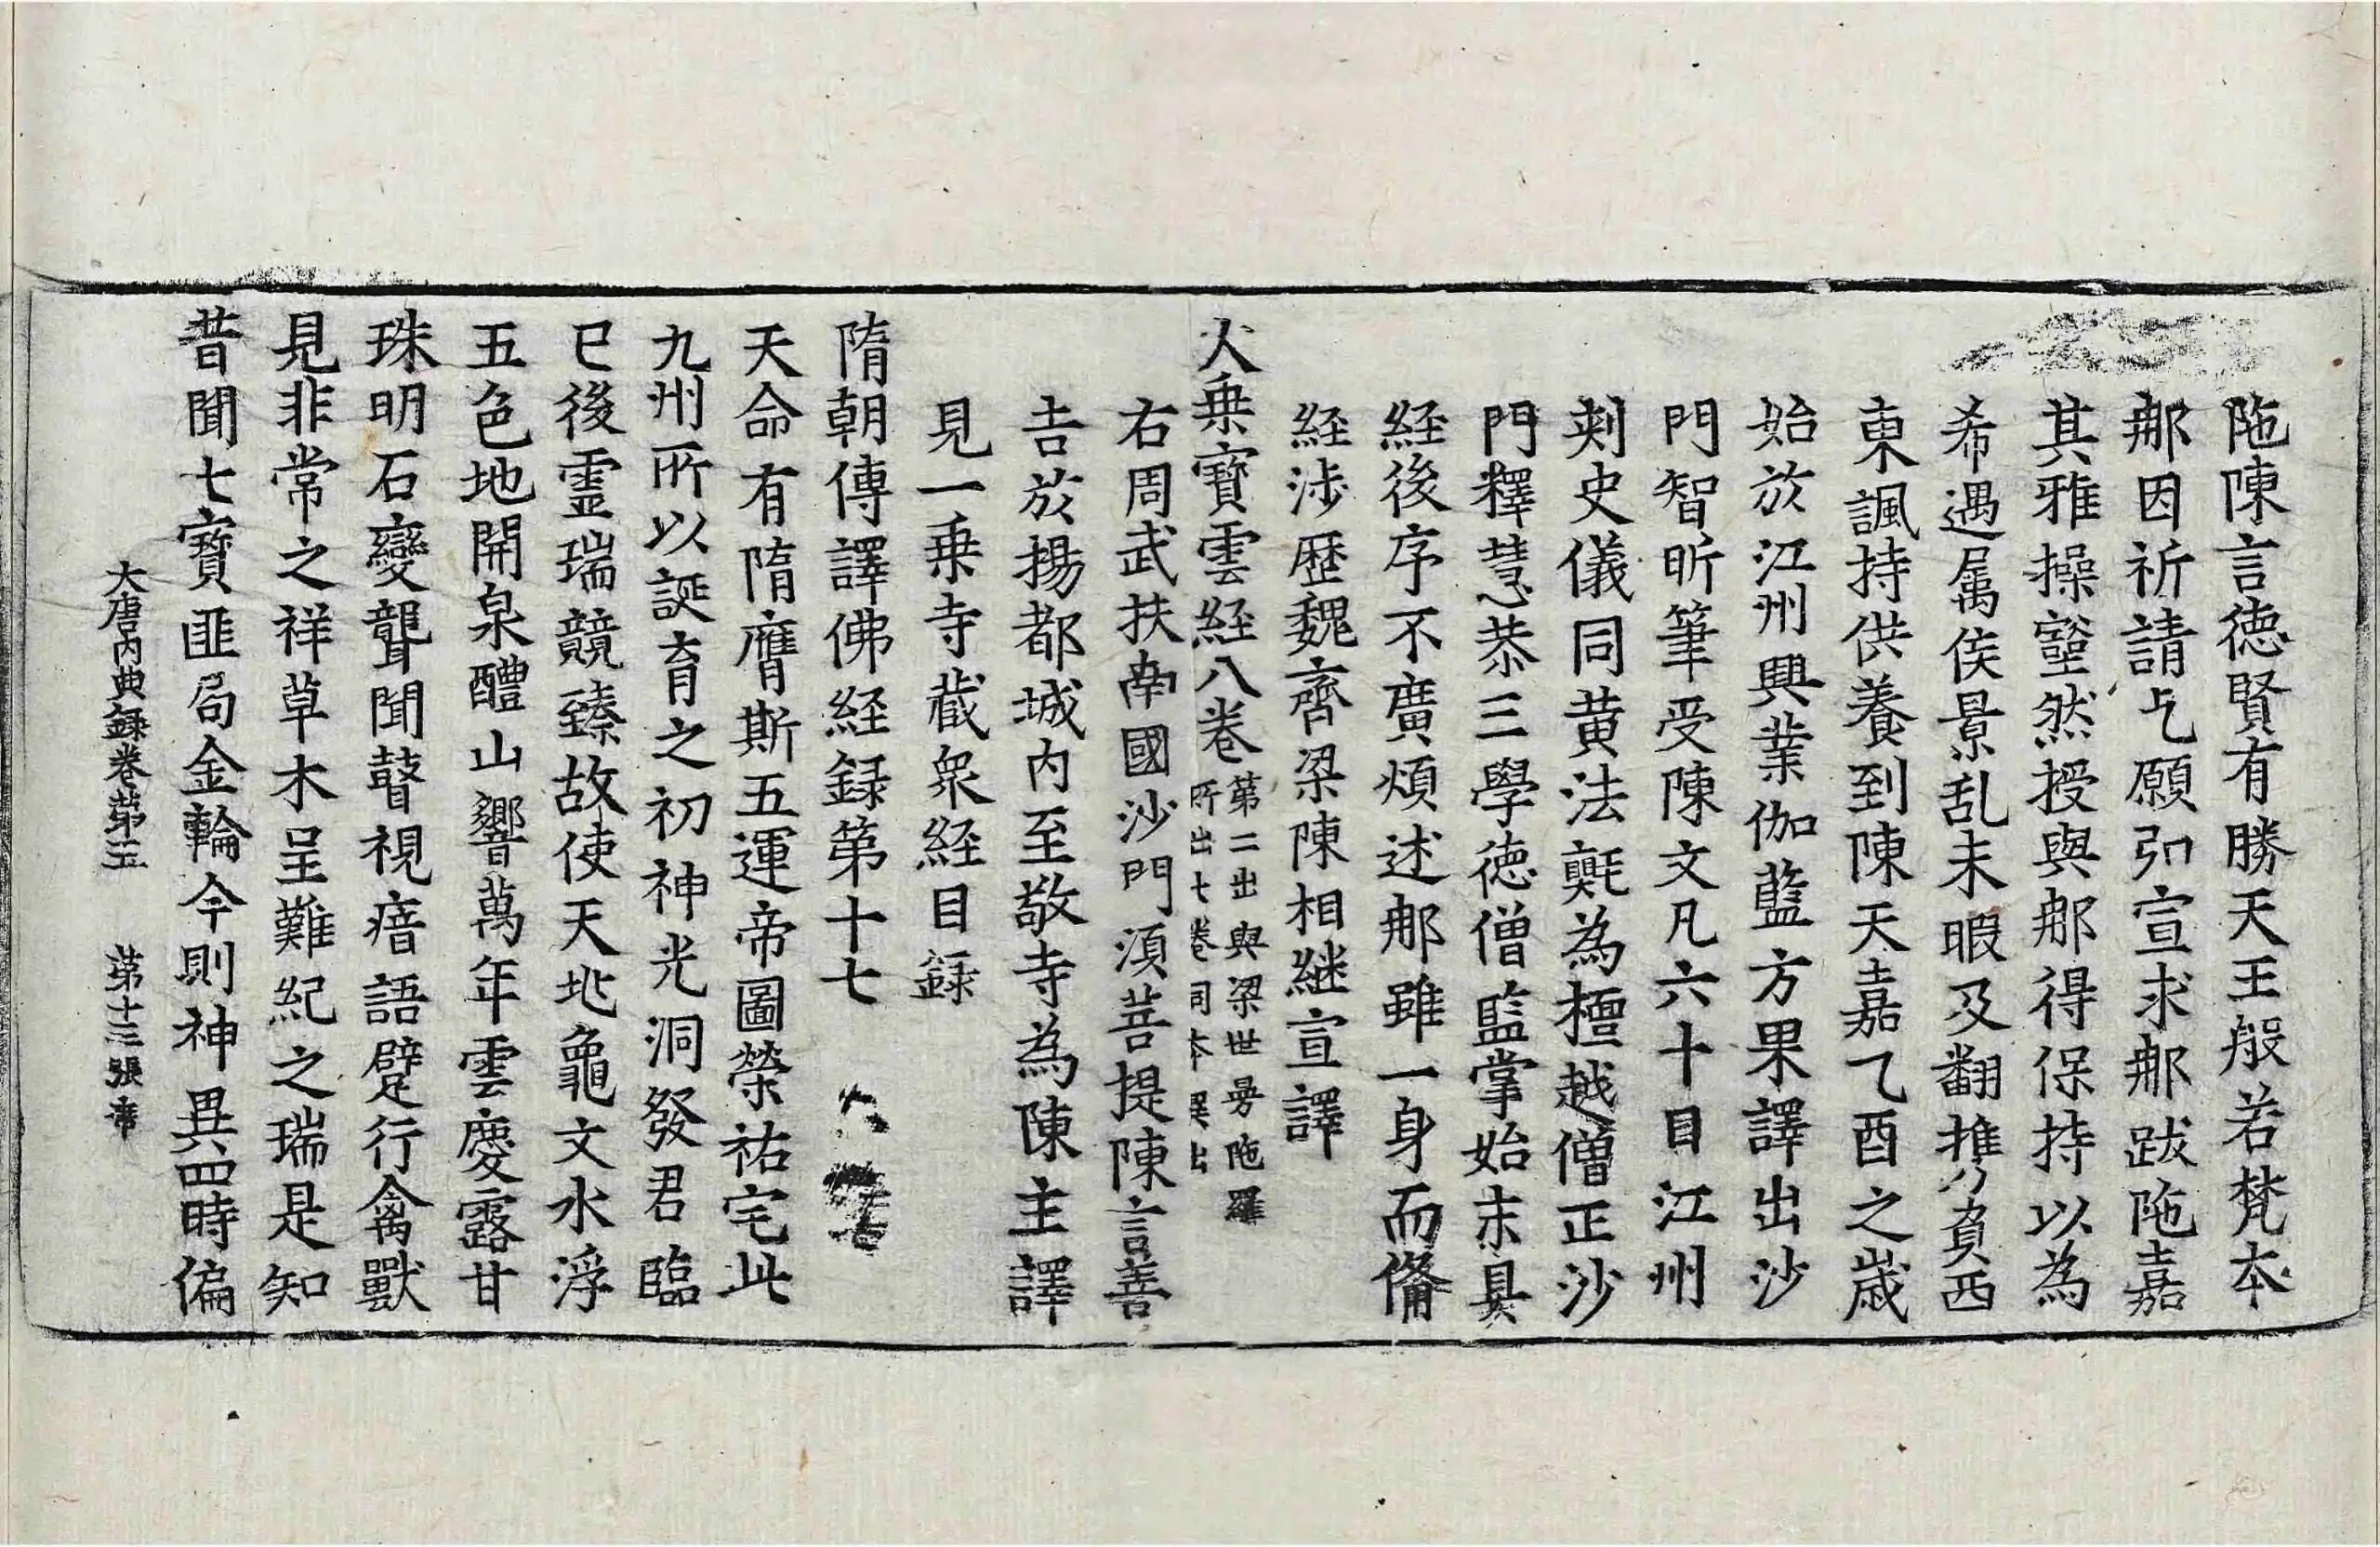 陁陳言德賢有勝天王般若梵本
那因祈請乞願弘宣求那跋陁嘉
其雅操豁然授與那得保持以為
希遇属侯景乱未暇及翻携負西
東諷持供養到陳天嘉乙酉之歲
始於江州興業伽藍方果譯出沙
門智昕筆受陳文凡六十日江州
刾史儀同黄法𣰋為檀越僧正沙
門釋慧恭三學德僧監掌始末具
経後序不廣煩述那雖一身而俻
経涉歷魏齊梁陳相継宣譯
大乗寶雲経八卷第二出與梁世曼陁羅
所出七卷同本異出
右周武扶南國沙門湏菩提陳言善
吉於揚都城内至敬寺為陳主譯
見一乗寺蔵衆経目録
隋朝傳譯佛経録第十七
天命有隋膺斯五運帝圖榮祐宅此
九州所以誕育之初神光洞發君臨
已後霊瑞競臻故使天兆龜文水浮
五色地開泉醴山響萬年雲慶露甘
珠明石變聾聞瞽視瘖語躄行禽獸
見非常之祥草木呈難紀之瑞是知
昔聞七寶匪局金輪今則神異四時偏
大唐内典録卷苐五 苐十三張